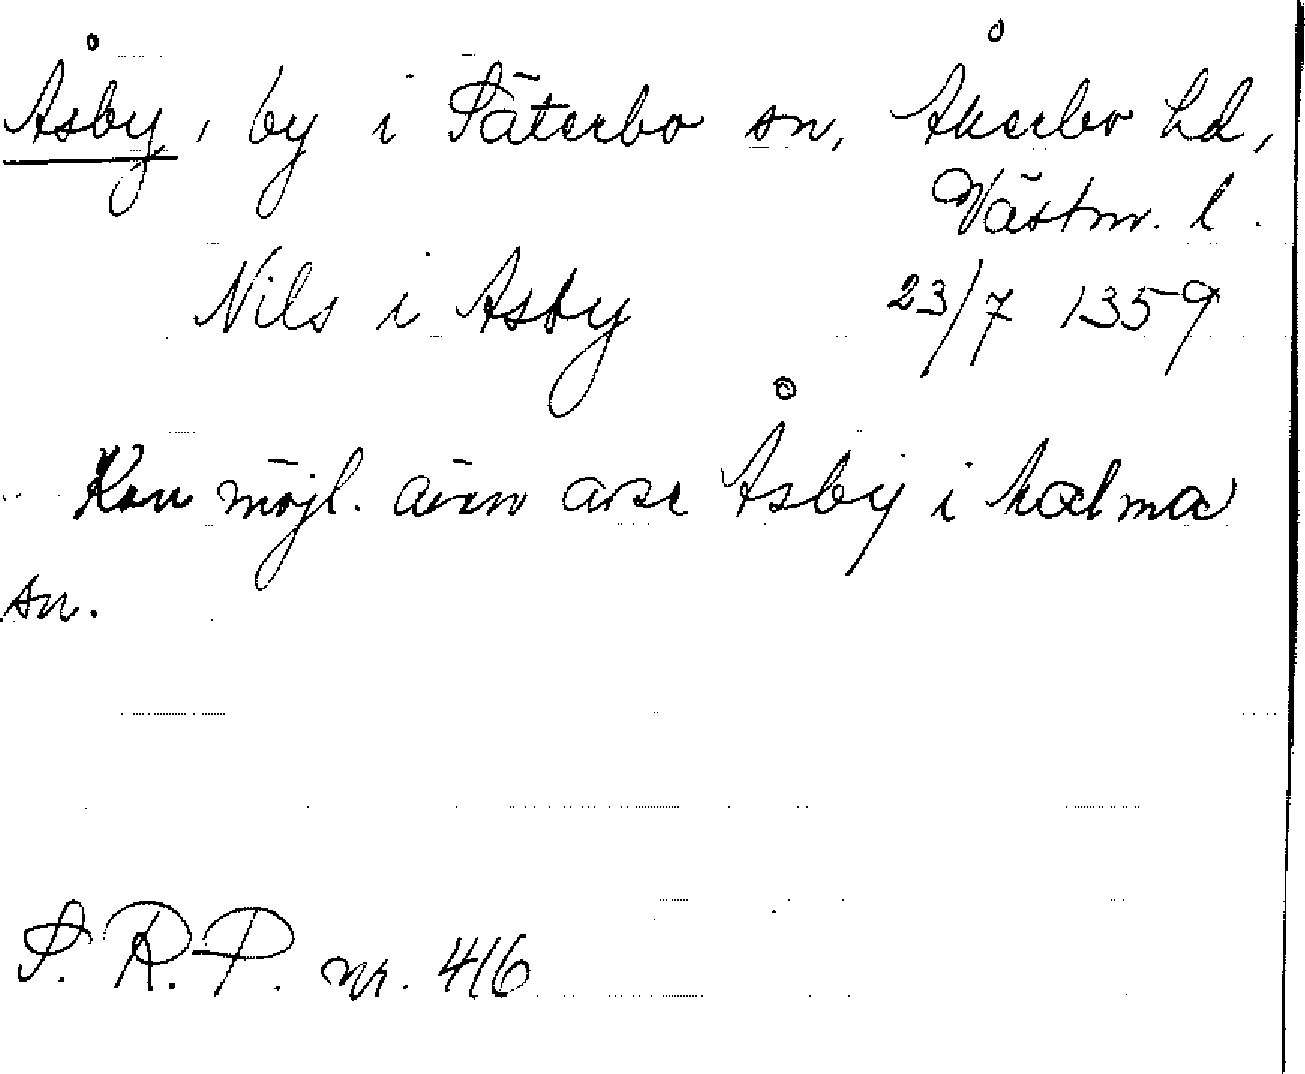 Åsby, by i Säterbo sn, Åkerbo hd,
Västm. l.
Nils i Asby 23/7 1359
Kan möjl. även avse Åsby i Malma
sn.
S. R. P. nr. 416